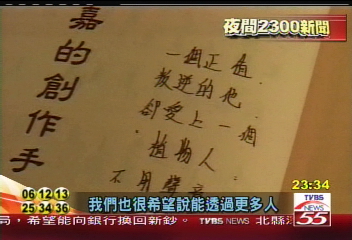 夜間2300新聞
嘉的創作手
一個正值
叛逆的他
卻愛上一個
植物人
不用聲
06 12 13
25 34 36
我們也很希望說能透過更多人
23:34
TVBS
NEWS
55
局，希望能向銀行換回新鈔。 TVBS NEWS 北縣